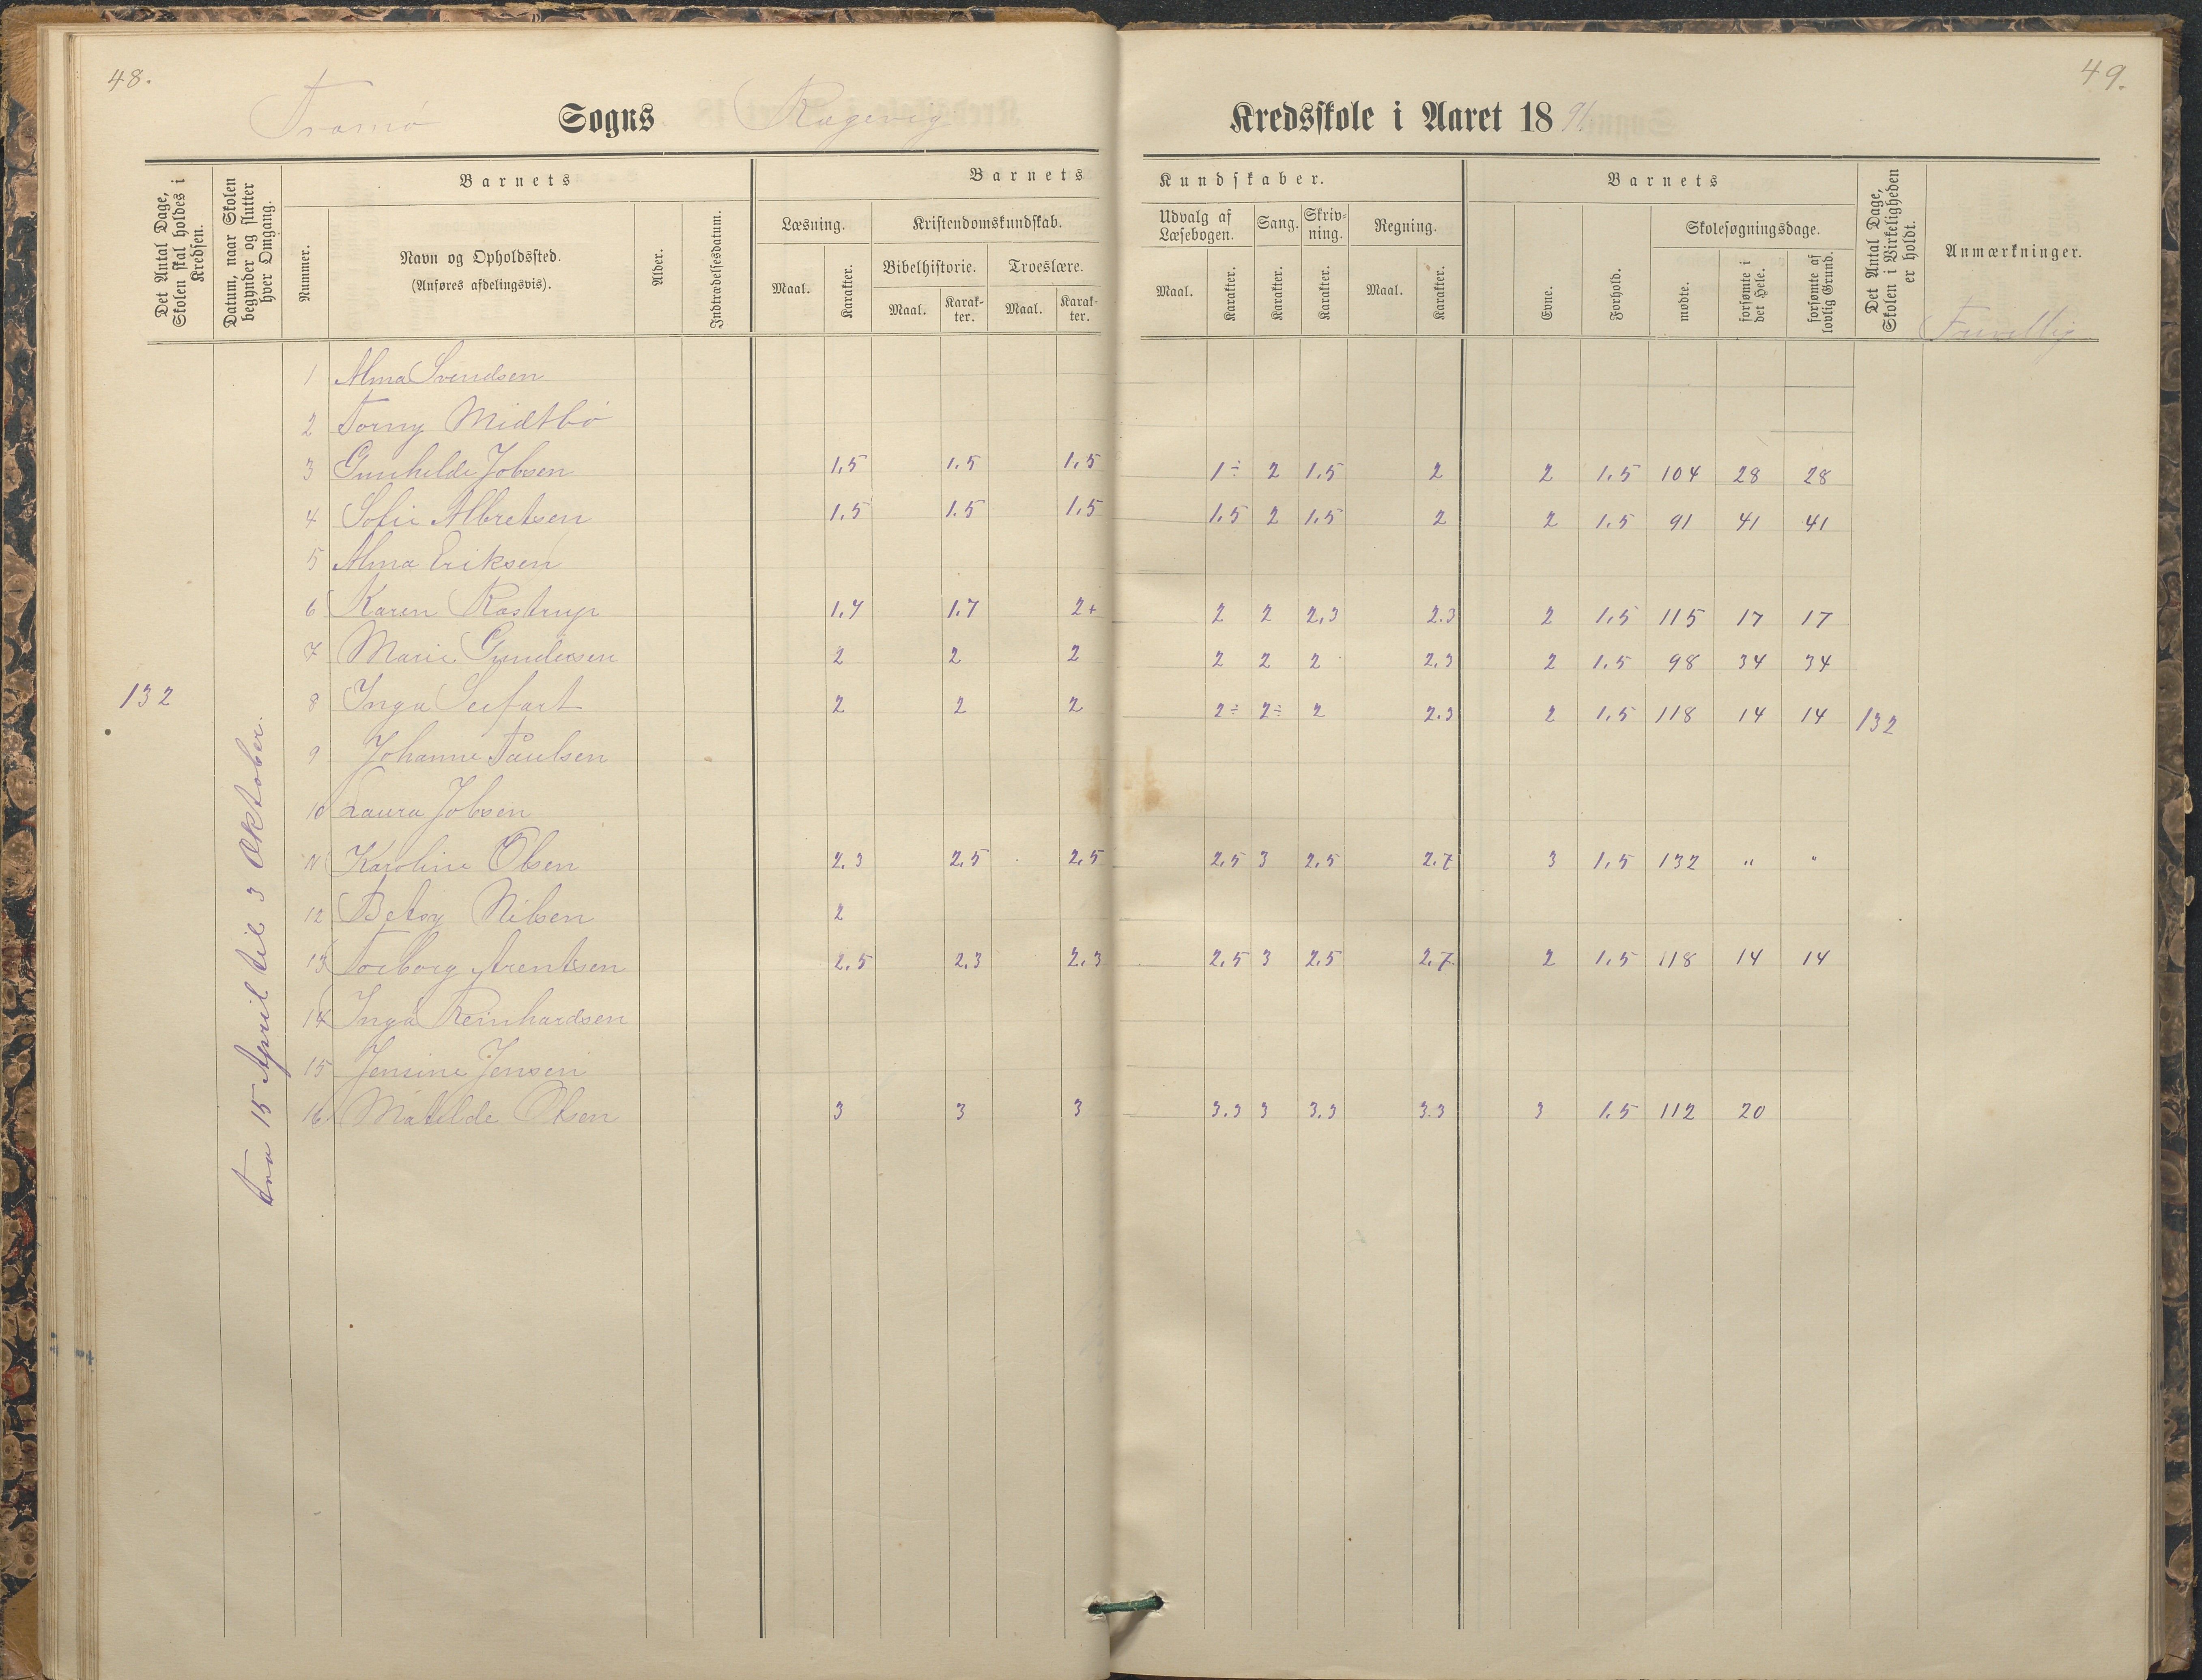 48.
49.
Tromø Sogns Rægevig Kredsskole i Aaret 1891
Det Antal Dage, Skolen skal holdes i Kredsen.
Datum, naar Skolen begynder og slutter hver Omgang.
Barnets
Barnets Kundskaber.
Barnets
Det Antal Dage, Skolen i Virkeligheden er holdt.
Anmærkninger.
Nummer.
Navn og Opholdssted.
(Anføres afdelingsvis).
Alder.
Indtrædelsesdatum.
Læsning.
Kristendomskundskab.
Udvalg af Læsebogen.
Sang.
Skrivning.
Regning.
Evne.
Forhold.
Skolesøgningsdage.
Bibelhistorie.
Troeslære.
Maal. Karakter. Maal. Karakter. Maal. Karakter. Maal. Karakter. Karakter. Karakter. Maal. Karakter.
mødte. forsømte i det Hele. forsømte af lovlig Grund.
Frivillig
1 Alma Svendsen
2 Torny Midtbø
3 Gunhilde Jobsen 1,5 1.5 1,5 1÷ 2 1.5 2 2 1.5 104 28 28
4 Sofie Albretsen 1.5 1.5 1,5 1.5 2 1.5 2 2 1.5 91 41 41
5 Alma Eriksen
6 Karen Rostrup 1.7 1.7 2+ 2 2 2,3 2.3 2 1.5 115 17 17
7 Marie Gundersen 2 2 2 2 2 2 2.3 2 1.5 98 34 34
132
8 Inga Seifart 2 2 2 2÷ 2÷ 2 2.3 2 1.5 118 14 14 132
9 Johanne Paulsen
10 Laura Jobsen
11 Karoline Olsen 2.3 2,5 2,5 2,5 3 2,5 2.7 3 1.5 132 " "
12 Betsy Nilsen 2
13 Torborg Arentsen 2.5 2.3 2.3 2.5 3 2.5 2.7 2 1.5 118 14 14
14 Inga Reinhardsen
15 Jensine Jensen
16 Matilde Olsen 3 3 3 3.3 3 3.3 3.3 3 1.5 112 20
Fra 15 April til 3 Oktober.